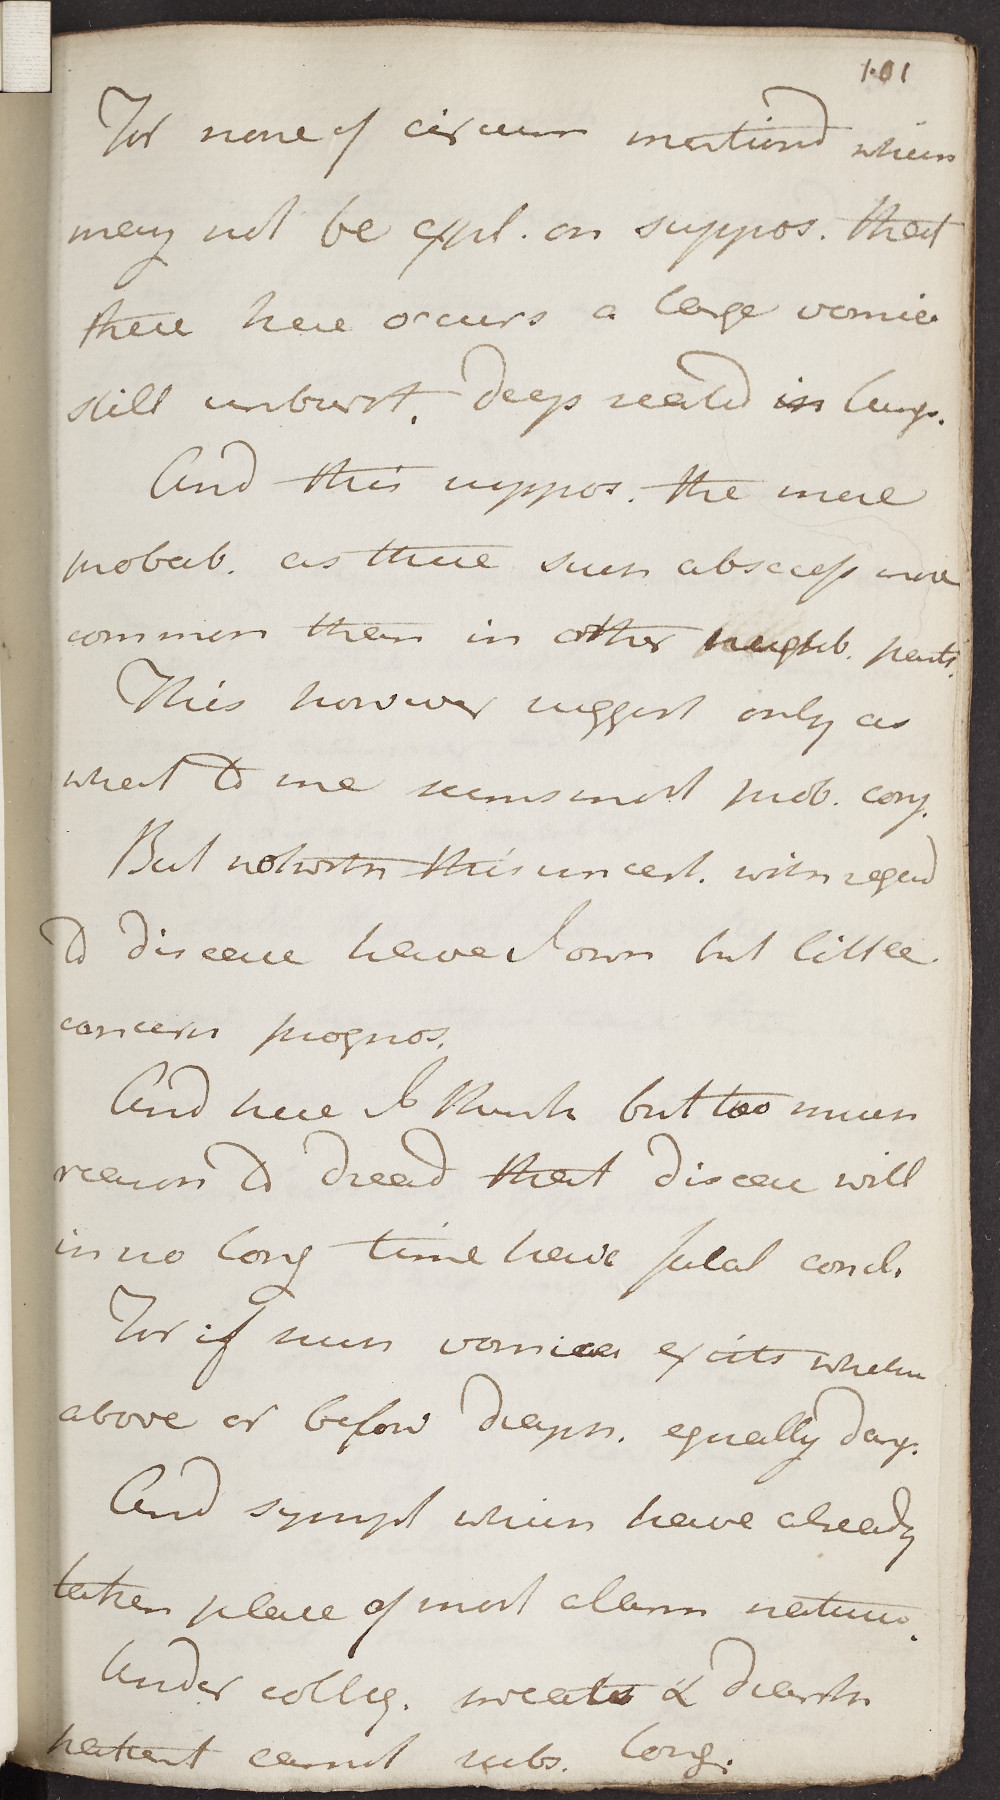 101
For none of circum mentiond which
may not be expl. on suppos. that
there here occurs a large vomica
still unburst, deep seated in lungs.
And this suppos. the more
probab. as there such abscess more
common than in other neighb. parts.
This however suggest only as
what to me seems most prob. conj.
But notwith this uncert. with regard
to disease have I own but little
concern prognos.
And here I think but too much
reason to dread that disease will
in no long time have fatal concl.
For if such vomica exists whether
above or below diaph. equally dang.
And sympt which have already
taken place of most alarm nature.
Under colliq. sweats & diarrh
patient cannot subs. long.